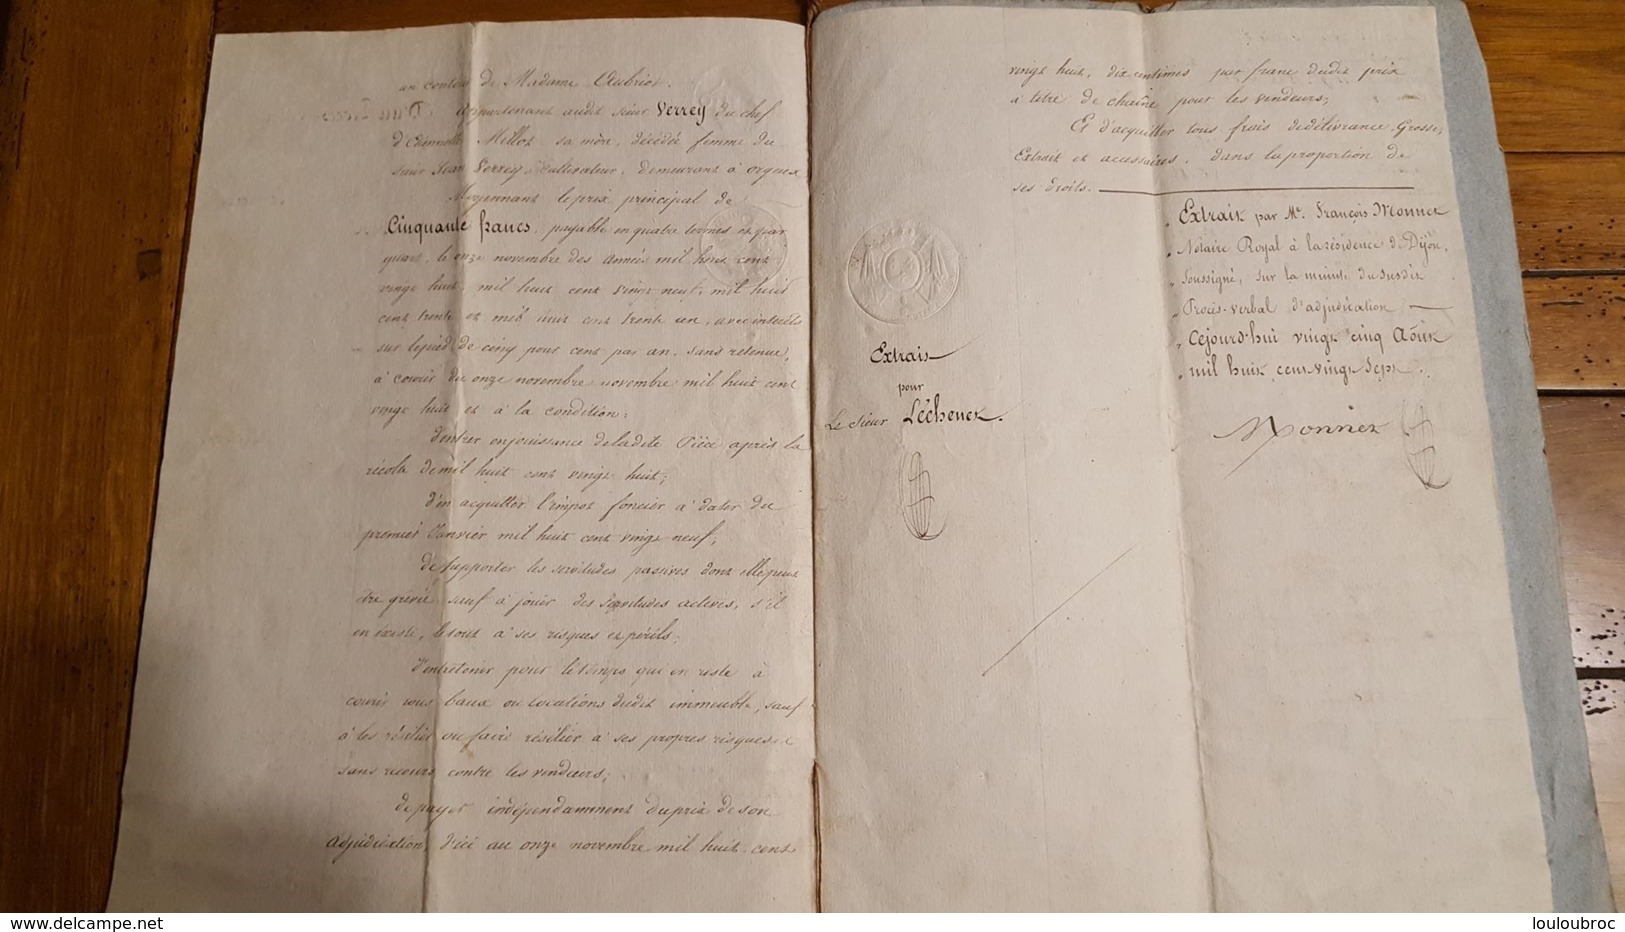 un couton de Madame Aubriot.
Appartenant audit sieur Verrey du chef
d'Etiennette Millot sa mère, décédé femme du
sieur Jean Verrey, cultivateur, demeurant à orgeux
Moyennant le prix principal de
Cinquante francs, payable en quatre termes et par
quart, le onze novembre des années mil huit cent
vingt huit, mil huit cent vingt neuf, mil huit
cent trente et mil huit cent trente un, avec intérêts
sur le pied de cinq pour cent par an, sans retenue,
à courir du onze novembre novembre mil huit cent
vingt huit et à la condition:
d'entrer en jouissance de ladite Pièce après la
récolte de mil huit cent vingt huit;
d'en acquitter l'impot foncier à dater du
premier Janvier mil huit cent vingt neuf;
de supporter les servitudes passives dont elle peut
être grevée sauf à jouir des servitudes actives, s'il
en existe, le tout à ses risques et périls;
d'entretenir pour le temps qui en reste à
courir tous baux ou locations dudit immeuble, sauf
à les résilier ou faire résilier à ses propres risques et
sans recours contre les vendeurs;
de payer indépendamment du prix de son
adjudication, d'ici au onze novembre mil huit cent
vingt huit, dix centimes par franc dudit prix
à titre de chaîne pour les vendeurs;
Et d'acquitter tous frais de délivrance, Grosse,
Extrait et accessoires, dans la proportion de
ses droits.
Extrait
pour
Le Sieur Léchenet.
Extrait par Me. François Monnet
Notaire Royal à la résidence de Dijon,
Soussigné, sur la minute du susdit
Procès-verbal d'adjudication
Cejourd'hui vingt cinq Août
mil huit cent vingt sept.
Monnet
www.delcampe.net
louloubroc